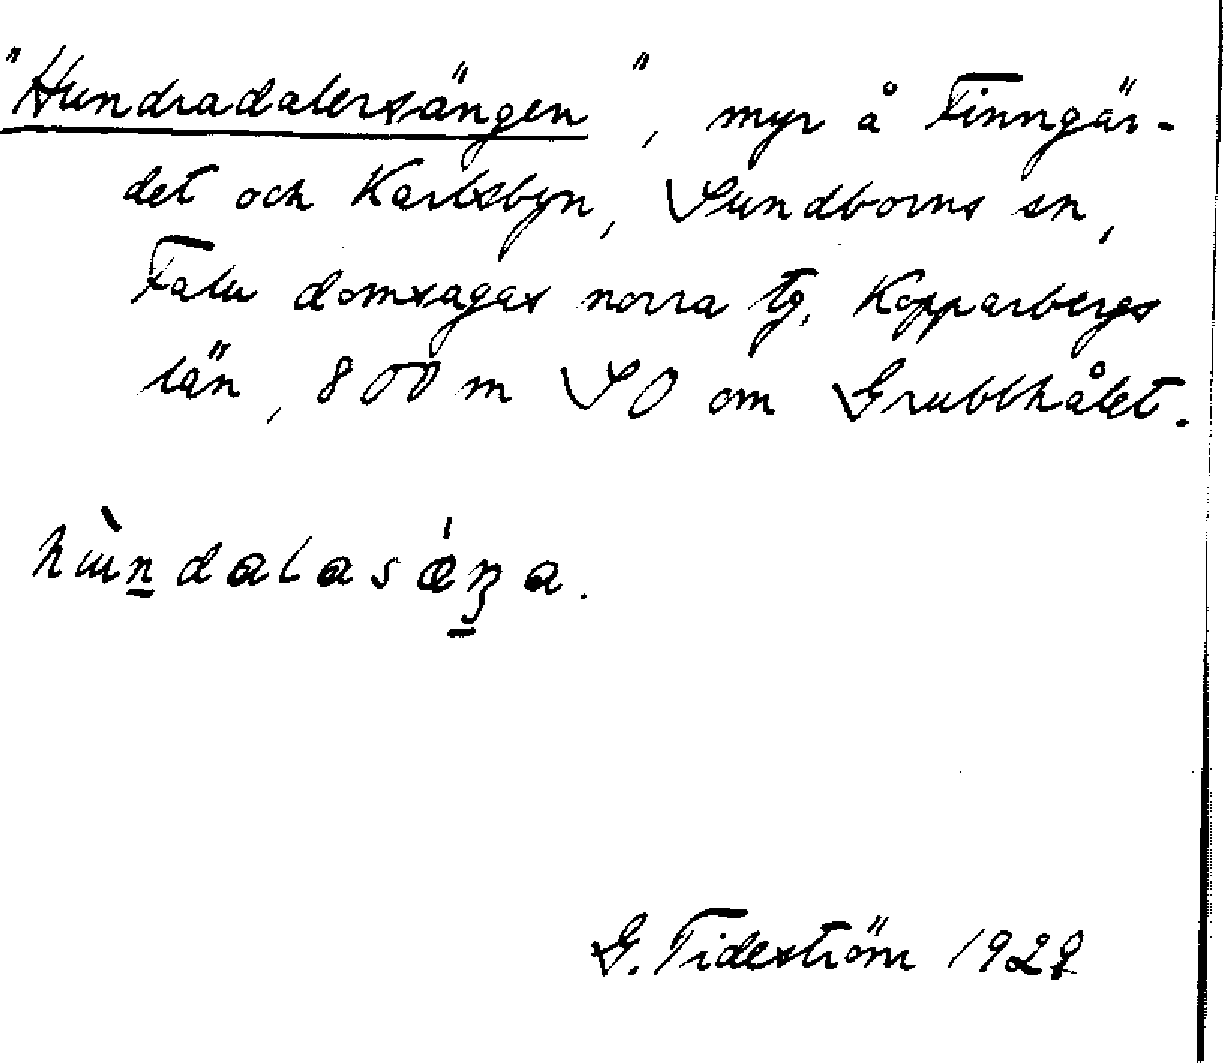 "Hundradalersängen", myr å Finngär-
det och Karlsbyn, Sundborns sn,
Falu domsagas norra tg, Kopparbergs
län, 800 m SO om Grubbhålet.
G. Tideström